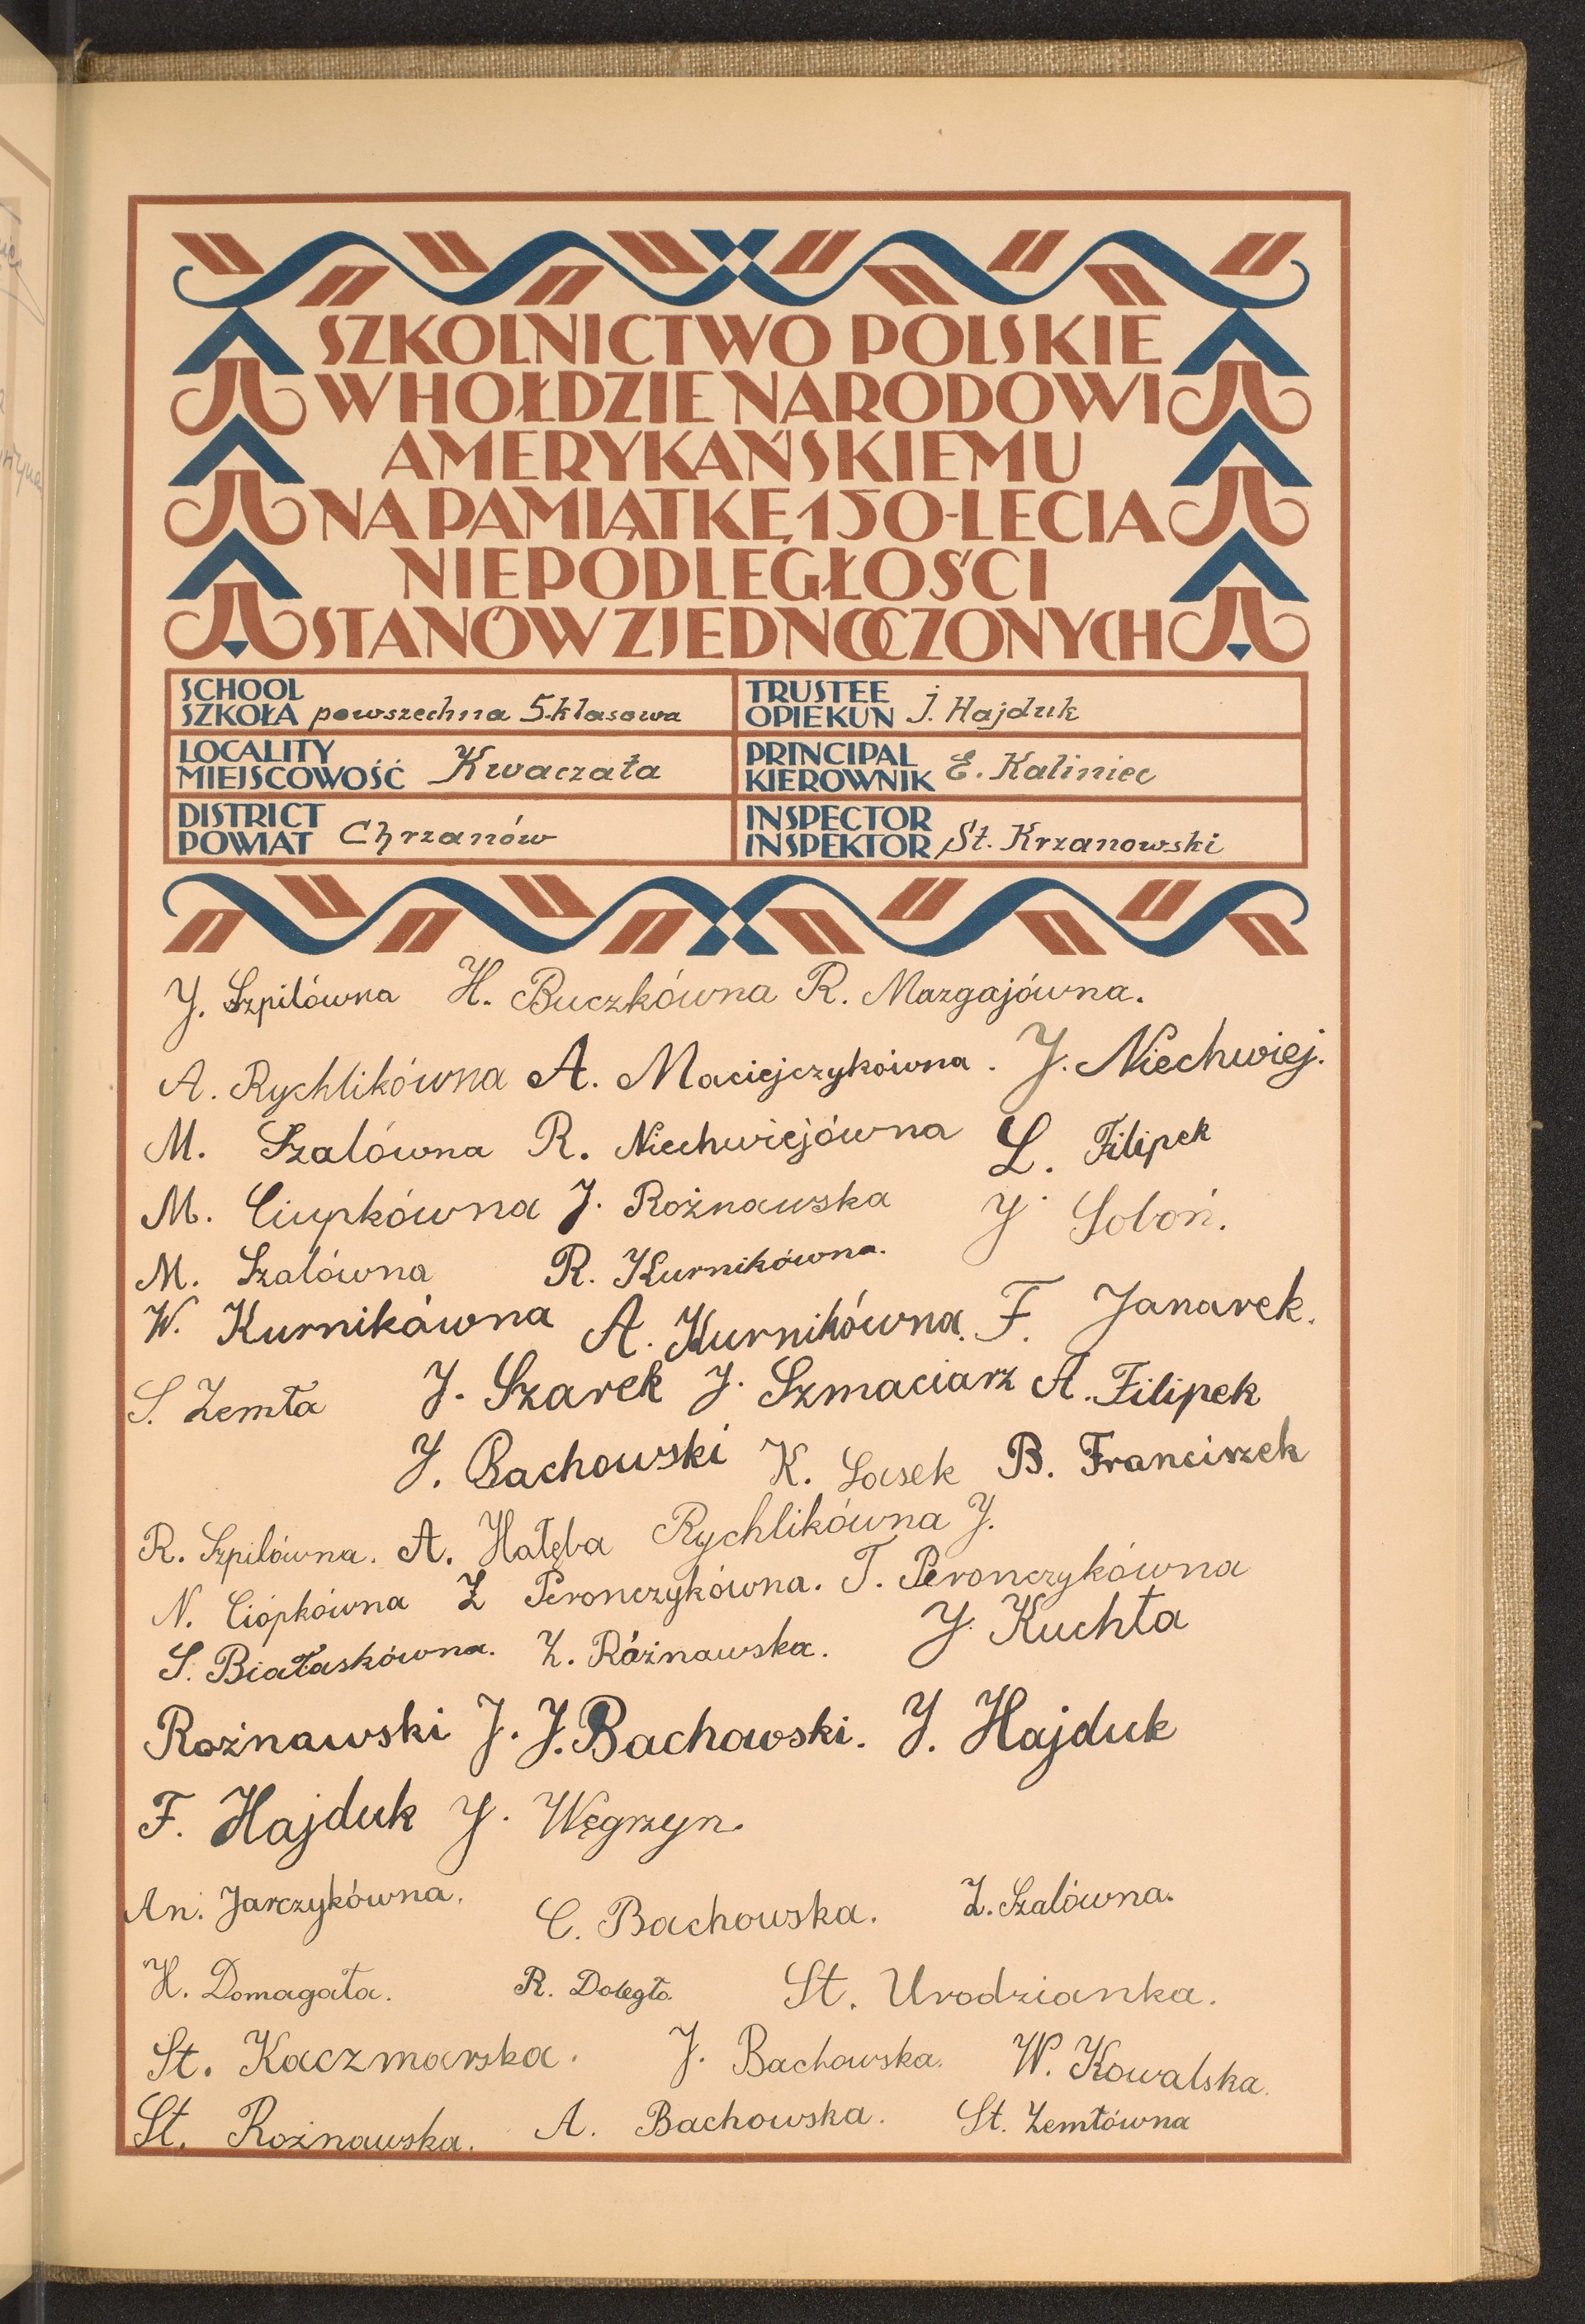 SZKOLNICTWO POLSKIE
W HOŁDZIE NARODOWI
AMERYKAŃSKIEMU
NA PAMIĄTKĘ 150-LECIA
NIEPODLEGŁOŚCI
STANÓW ZJEDNOCZONYCH
SCHOOL
SZKOŁA powszechna 5-klasowa
TRUSTEE
OPIEKUN J. Hajduk
LOCALITY
MIEJSCOWOŚĆ Kwaczała
PRINCIPAL
KIEROWNIK E. Kaliniec
DISTRICT
POWIAT Chrzanów
INSPECTOR
INSPEKTOR St. Krzanowski
J. Szpilówna H. Buczkówna R. Mazgajówna.
A. Rychlikówna A. Maciejczykówna. J. Niechwiej.
M. Szalówna R. Niechwiejówna L. Filipek
M. Ciupkówna J. Rożnawska J. Soboń.
M. Szalówna R. Kurnikówna.
W. Kurnikówna A. Kurnikówna. F. Janarek.
S. Zemła J. Szarek J. Szmaciarz A. Filipek
J. Bachowski K. Łasek B. Franciszek
R. Szpilówna. A. Hałęba Rychlikówna J.
N. Ciópkówna Z Peronczykówna. T. Peronczykówna
S. Białaskówna. Z. Różnawska. J. Kuchta
Rożnawski J. J. Bachowski. J. Hajduk
F. Hajduk J. Węgrzyn.
An. Jarczykówna. C. Bachowska. Z. Szalówna.
H. Domagała. R. Dolęgło. St. Urodzianka.
St. Kaczmarska. J. Bachowska. W. Kowalska.
St. Rożnawska. A. Bachowska. St. Zemłówna